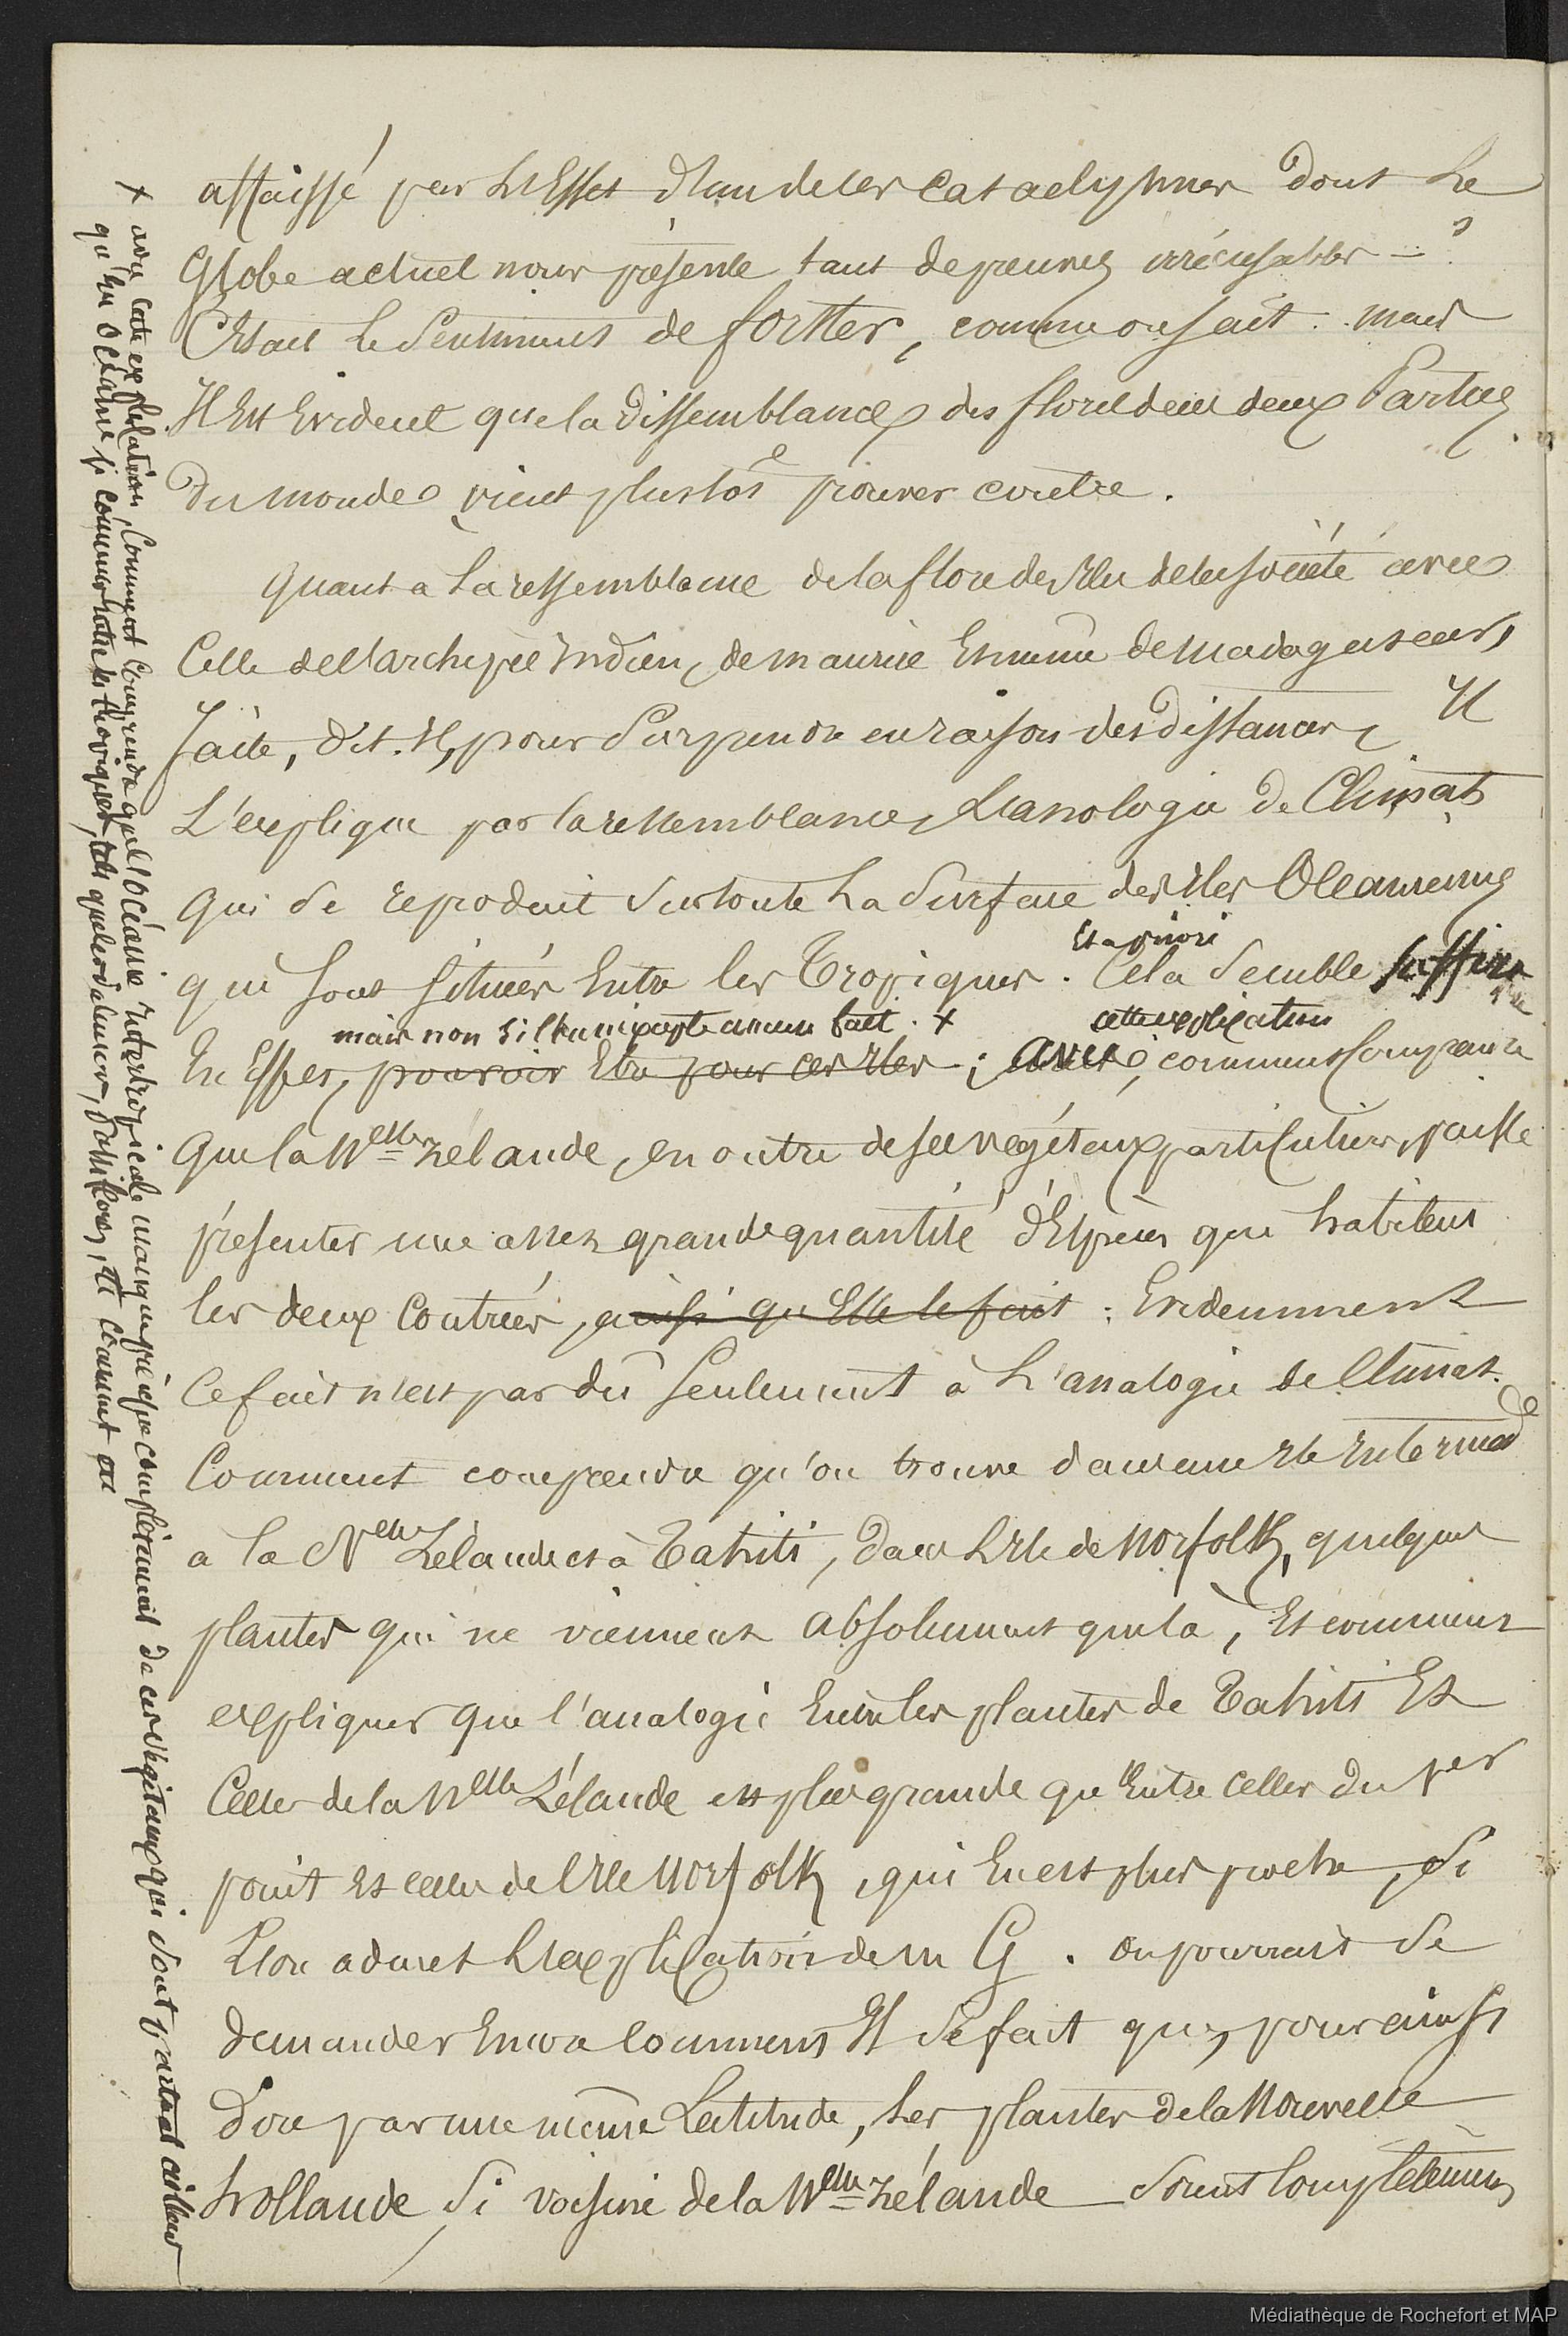 affaissé par l'Effet d'un de ces Cataclysmes dont Le
Globe actuel nous présente tant de preuves irrécusables — ?
C'Etait le Sentiment de forster, comme on sait : mais
Il Est Evident que la dissemblance des flores de ces deux Parties
du monde vient plustôt prouver contre.
Quant a La ressemblance de la flore des Iles de la société avec
Celle de l'archipel indien, de maurice Et même de madagascar,
faite, dit-il, pour Surprendre en raison des distances, Il
L'explique par la ressemblance, L'analogie de Climat
qui Se reproduit sur toute La Surface des Iles Oceanienne
qui Sont situées Entre les Tropiques. Et a priori Cela Semble suffire
En Effet, pouvoir Etre pour ces Iles ; mais non s'il faut aucun fait. + avec cette explication, comment comprendre
Que la Nelle Zélande, en outre de ses végétaux particuliers, puisse
présenter une assez grande quantité d'Espèces qui habitent
les deux Contrées, ainsi qu'Elle le fait : Evidemment
Ce fait n'est pas dû Seulement à L'analogie de Climat.
Comment comprendre qu'on trouve dans une Ile Intermede
a la Nelle Zélande et à Tahiti, dans L'Ile de Norfolk, quelques
plantes qui ne viennent absolument que là, Et comment
expliquer que l'analogie Entre les plantes de Tahiti Et
Celles de la Nelle Zélande est plus grande qu'Entre celles du 1er
point Et celles de l'Ile Norfolk, qui En est plus proche, Si
L'on admet L'explication de m G. On pourrait Se
demander Encore comment Il Se fait que, pour ainsi
dire par une même Latitude, Les plantes de la Nouvelle
hollande Si voisine de la Nelle Zélande Sont Complètement
+ avec cette explication, Comment Comprendre que l'Océanie Intertropicale manque presque complètement de ces végétaux qui sont partout ailleurs
qu'en Océanie si communs entre les tropiques, tels que les Palmiers, Passiflores, Et comment on